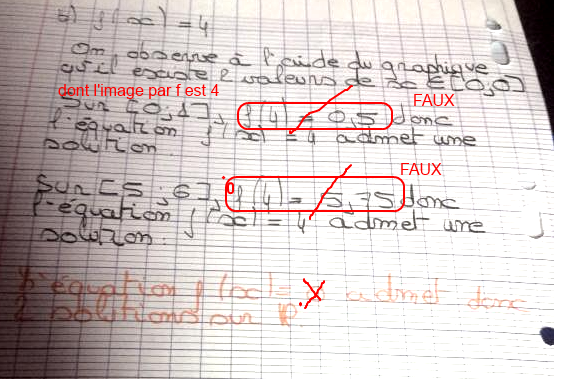 b) f(x) = 4
On observe à l'aide du graphique
qu'il existe 2 valeurs de x ∈ [0,0]
dont l'image par f est 4
Sur [0,1], f(4) = 0,5 donc
FAUX
l'équation f(x) = 4 admet une
solution.
FAUX
Sur [5;6], f(4) = 5,75 donc
l'équation f(x) = 4 admet une
solution.
l'équation f(x) = admet donc
2 solutions sur